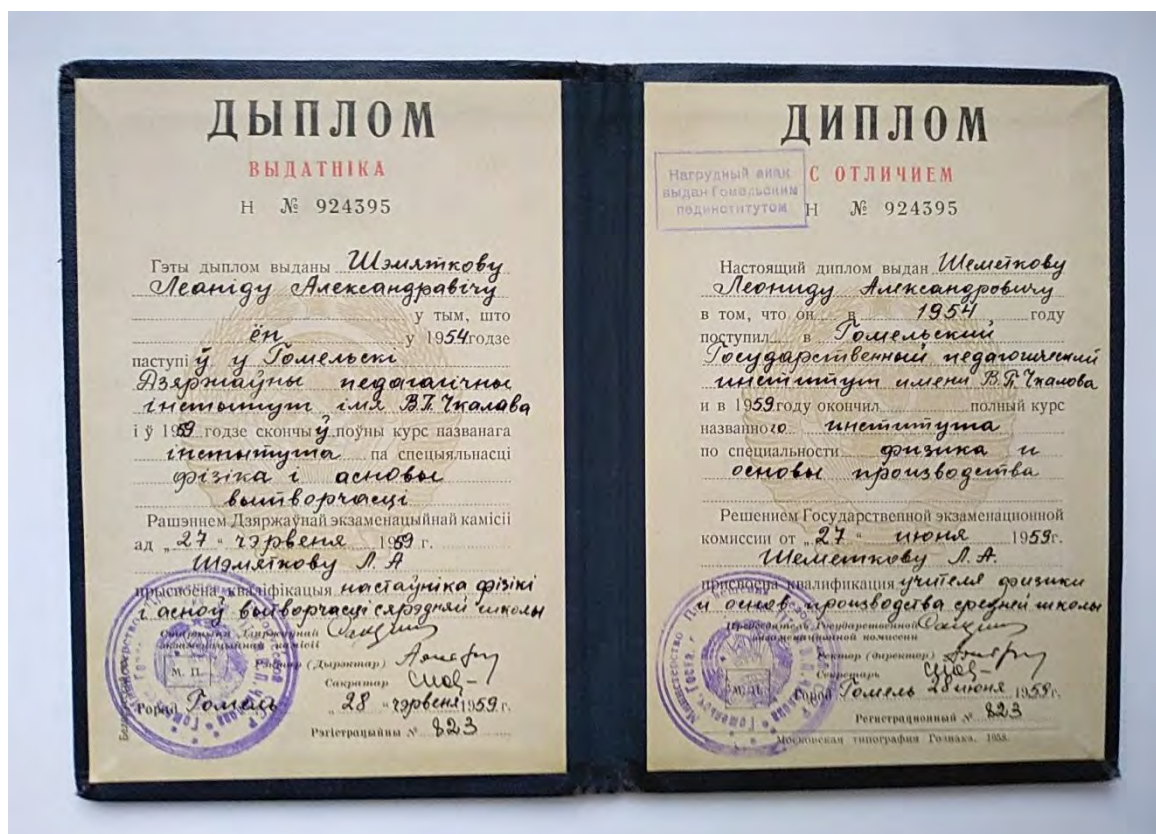 ДЫПЛОМ
ВЫДАТНІКА
Н № 924395
Гэты дыплом выданы Шэмяткову
Леаніду Александравічу
у тым, што
ён у 1954 годзе
паступіў у Гомельскі
Дзяржаўны педагагічны
інстытут імя В.П. Чкалава
і ў 1959 годзе скончыў поўны курс названага
інстытута па спецыяльнасці
фізіка і асновы
вытворчасці
Рашэннем Дзяржаўнай экзаменацыйнай камісіі
ад „27" чэрвеня 1959 г.
Шэмяткову Л. А
прысвоена кваліфікацыя настаўніка фізікі
і асноў вытворчасці сярэдняй школы
Старшыня Дзяржаўнай
экзаменацыйнай камісіі
Рэктар (Дырэктар)
Сакратар
М. П.
Город Гомель „28" чэрвеня 1959 г.
Рэгістрацыйны № 823
ДИПЛОМ
Нагрудный знак
выдан Гомельским
пединститутом
С ОТЛИЧИЕМ
Н № 924395
Настоящий диплом выдан Шеметкову
Леониду Александровичу
в том, что он в 1954 году
поступил в Гомельский
Государственный педагогический
институт имени В.П. Чкалова
и в 1959 году окончил полный курс
названного института
по специальности физика и
основы производства
Решением Государственной экзаменационной
комиссии от „27" июня 1959 г.
Шеметкову Л. А.
присвоена квалификация учителя физики
и основ производства средней школы
Председатель Государственной
экзаменационной комиссии
Ректор (директор)
Секретарь
М. П.
Город Гомель 28 июня 1959 г.
Регистрационный № 823
Московская типография Гознака. 1958.